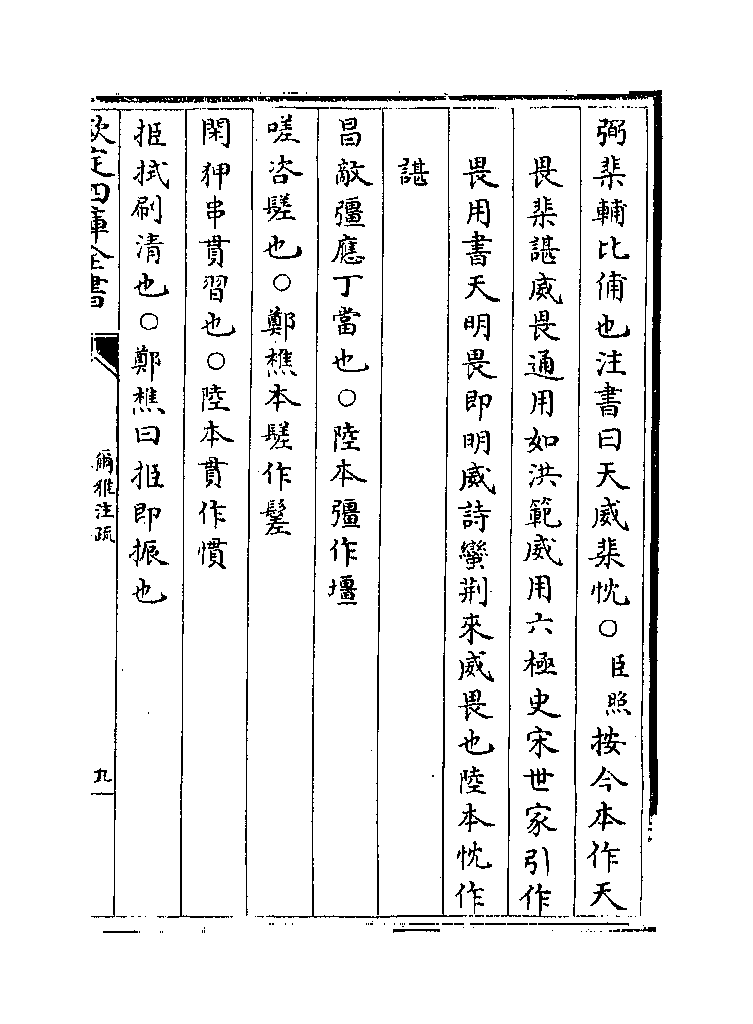 弼棐輔比俌也注書曰天威棐忱○臣照按今本作天
畏棐諶威畏通用如洪範威用六極史宋世家引作
畏用書天明畏即明威詩蠻荆來威畏也陸本忱作
諶
昌敵彊應丁當也○陸本彊作壃
嗟咨䰈也○鄭樵本䰈作髽
閑狎串貫習也○陸本貫作慣
挋拭刷清也○鄭樵曰挋即振也
欽定四庫全書
爾雅注疏
九